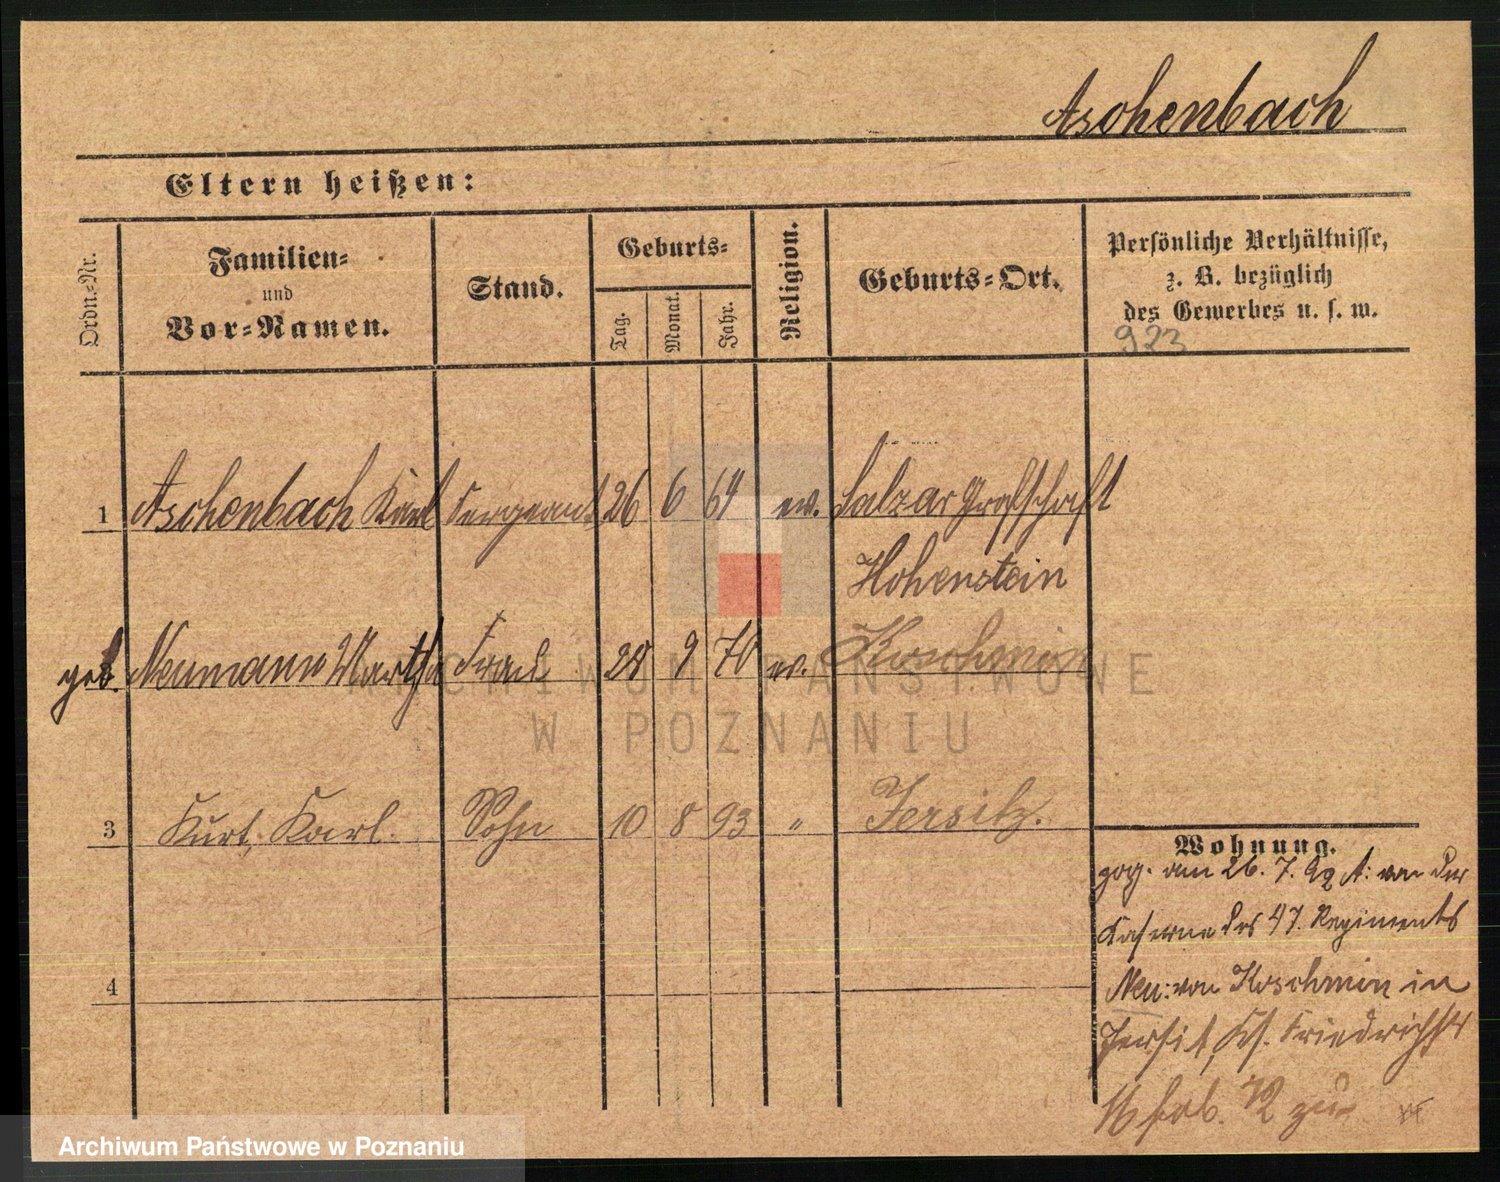 Aschenbach
Eltern heißen:
Ordn.-Nr.
Familien-
und
Vor-Namen.
Stand.
Geburts-
Tag.
Monat.
Jahr.
Religion.
Geburts-Ort.
Persönliche Verhältnisse,
z. B. bezüglich
des Gewerbes u. s. w.
923
1 Aschenbach Karl Sergeant 26 6 64 ev. Salzar Grafschaft
Hohenstein
geb. Neumann Martha Frau 28 9 70 ev. Koschmin
3 Kurt, Karl. Sohn 10 8 93 " Jersitz.
4
Wohnung.
zog. am 26. 7. 92 A: von der
Kaserne des 47. Regiments
Neu: von Koschmin in
Jersit, Kf. Friedrichstr
16 zu
ARCHIWUM PAŃSTWOWE
W POZNANIU
Archiwum Państwowe w Poznaniu